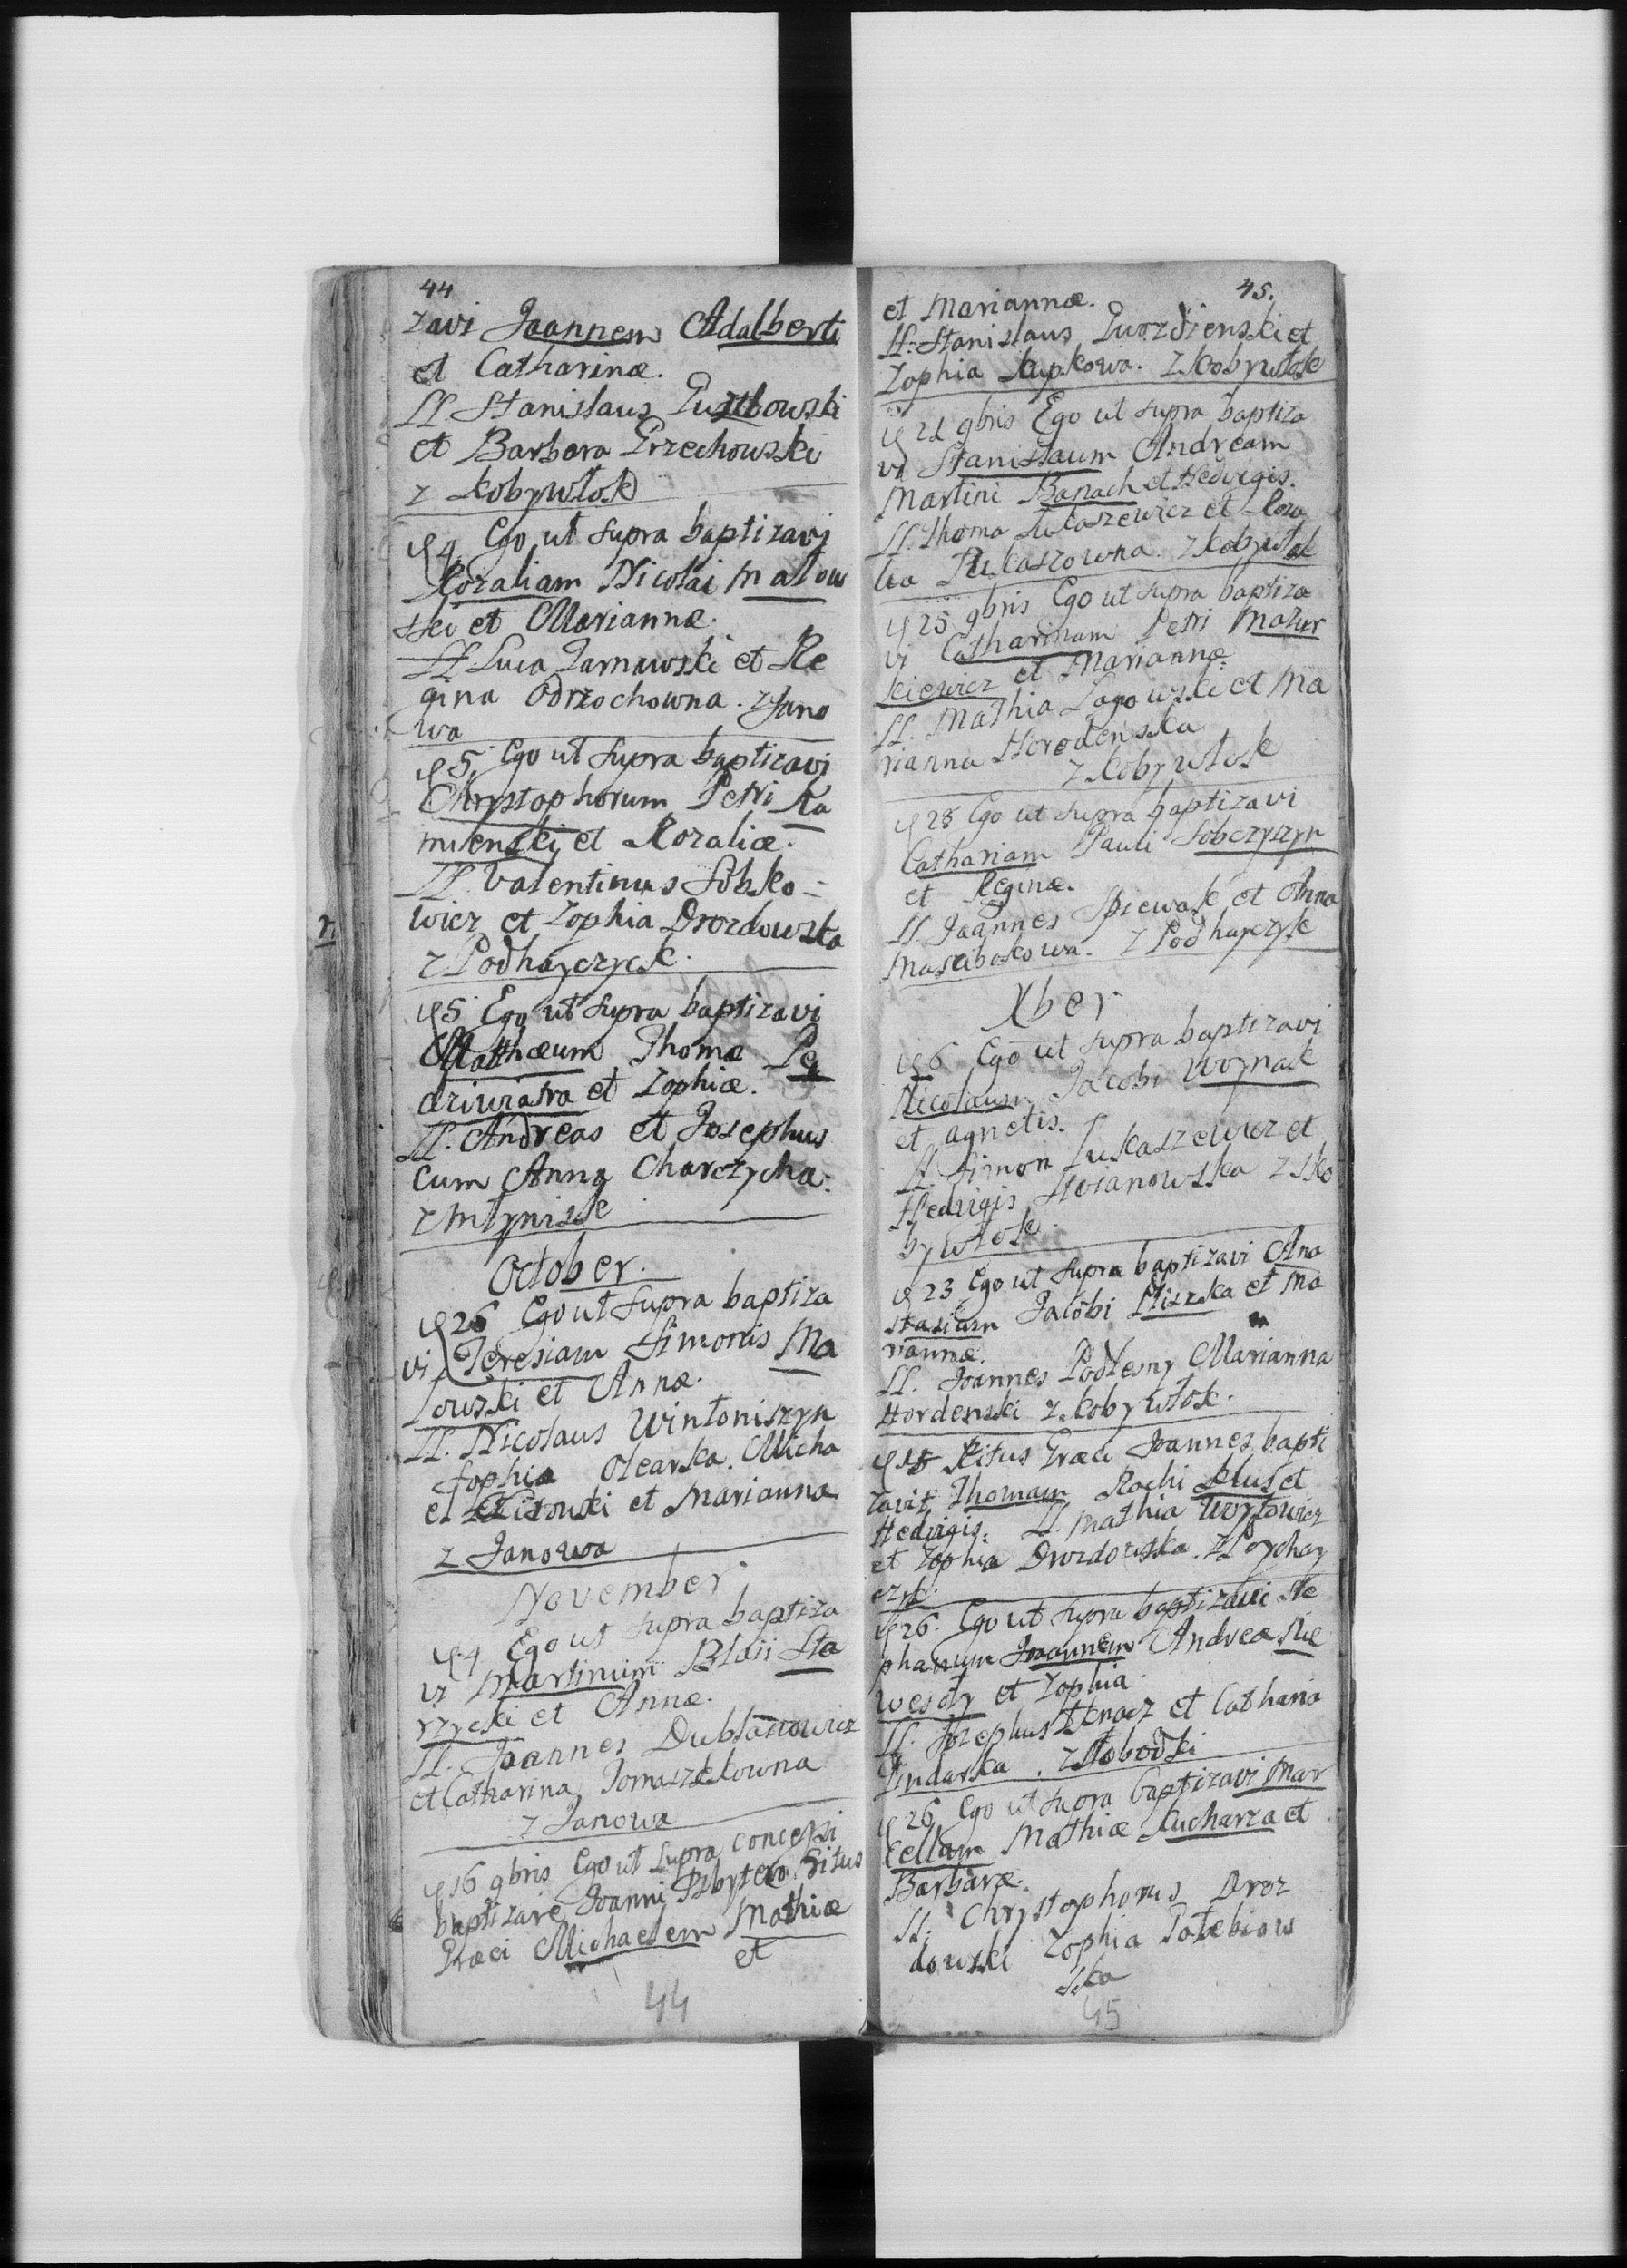 44
zavi Joannem Adalberti
et Catharinæ.
SS. Stanislaus
et Barbara Przechowski
z Kobywłok
4 Ego ut supra baptizavi
Rozaliam Nicolai Malow
ski et Mariannæ.
SS. Luca Tarnawski et Re
gina Odrzochowna. z Jano
wa
5 Ego ut supra baptizavi
Chrystophorum Petri Ka
mienski et Rozaliæ.
SS. Valentinus Sobko-
wicz et Zophia Drozdowska
z Podhayczyck.
5 Ego ut supra baptizavi
Matthæum Thomæ
et Zophiæ.
SS. Andreas et Josephus
cum Anna Charczycha.
z Młynisk
October.
26 Ego ut supra baptiza
vi Teresiam Simonis Ma
lowski et Annæ.
SS. Nicolaus Wintoniszyn
Sophia Olearska. Micha
el et Marianna
z Janowa
November
4 Ego ut supra baptiza
vi Martinum Blasii Sta
rzycki et Annæ.
SS. Joannes Dublanowicz
et Catharina Tomaszkowna
z Janowa
16 9bris Ego ut supra concessi
baptizare Joanni Pbbytero Ritus
Græci Michaelem Mathiæ
et
44
45.
et Mariannæ.
SS. Stanislaus Gwozdienski et
Zophia Kupkowa. z Kobywłok
21 9bris Ego ut supra baptiza
vi Stanislaum Andream
Martini Banach et Hedvigis.
SS. Thoma Lukaszewicz et Roza
lia Lukaszowna. z Kobywłok
25 9bris Ego ut supra baptiza
vi Catharinam Petri Mazur
kiewicz et Mariannæ.
SS. Mathia Lagowski et Ma
rianna Horodenska
z Kobywłok
28 Ego ut supra baptizavi
Cathariam Pauli Sobczyszyn
et Reginæ.
SS. Joannes Spiewak et Anna
z Podhayczyk
Xber
6 Ego ut supra baptizavi
Nicolaum Jacobi Woynak
et Agnetis.
SS. Simon Lukaszewicz et
Hedvigis Stoianowska z Ko
bywłok.
23 Ego ut supra baptizavi Ana
stasium Jacobi Kliszka et Ma
riannæ.
SS. Joannes Podlesny Marianna
Hordenski z Kobywłok.
18 Ritus Græci Joannes bapti
zavit Thomam Rochi Klus et
Hedvigis. SS. Mathia Woytowicz
et Zophia Drozdowska. z Poychay
czyk.
26 Ego ut supra baptizavi Ste
phanum Joannem Andreæ Nie
wesoły et Zophia.
SS. Josephus Tkracz et Catharia
z Słobodki
26 Ego ut supra baptizavi Mar
cellam Mathiæ Kucharza et
Barbaræ.
SS. Chrystophorus Droz
dowski Zophia Potebiows
ska
45